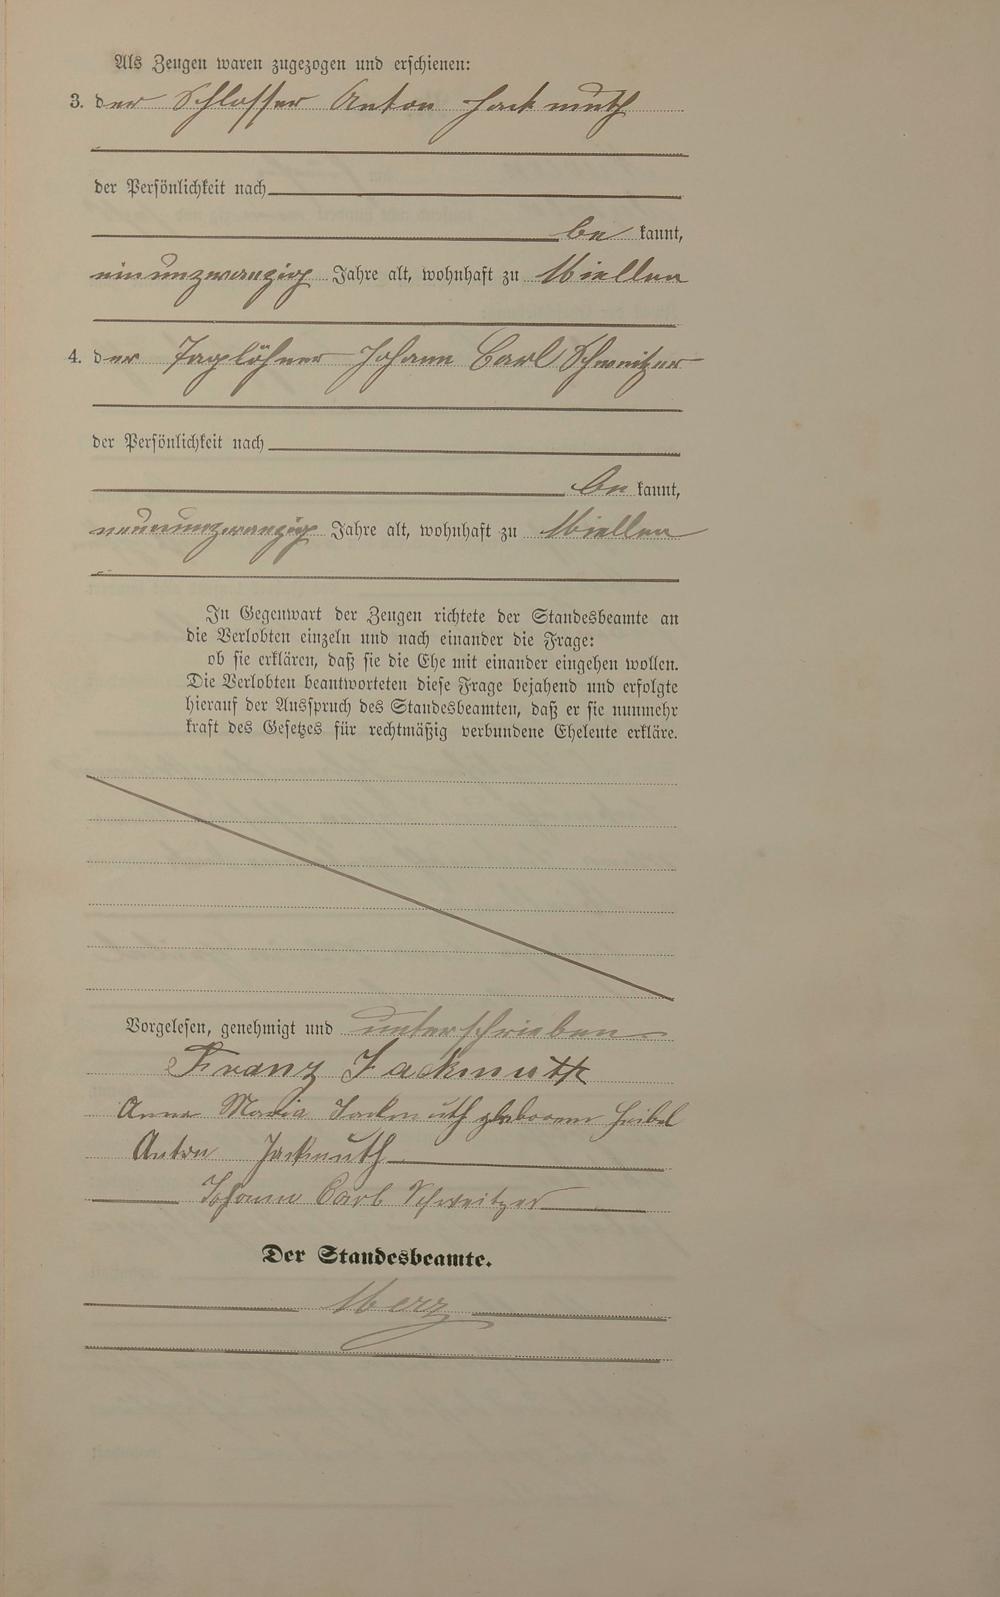 Als Zeugen waren zugezogen und erschienen:
3. der Schlosser Anton Jackmuth
der Persönlichkeit nach
be kannt,
einunzwanzig Jahre alt, wohnhaft zu Miellen
4. der Taglöhner Johann Carl Schweitzer
der Persönlichkeit nach
be kannt,
neununzwanzig Jahre alt, wohnhaft zu Miellen
In Gegenwart der Zeugen richtete der Standesbeamte an
die Verlobten einzeln und nach einander die Frage:
ob sie erklären, daß sie die Ehe mit einander eingehen wollen.
Die Verlobten beantworteten diese Frage bejahend und erfolgte
hierauf der Ausspruch des Standesbeamten, daß er sie nunmehr
kraft des Gesetzes für rechtmäßig verbundene Eheleute erkläre.
Vorgelesen, genehmigt und unterschrieben
Franz Jackmuth
Anna Maria Jackmuth geborene Heibel
Anton Jackmuth
Johann Carl Schweitzer
Der Standesbeamte.
Merz